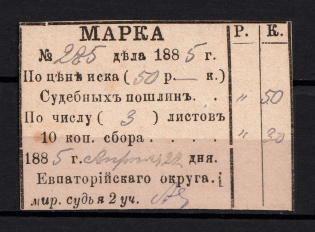 МАРКА Р. К.
№ 285 дѣла 1885 г.
По цѣнѣ иска (50 р.— к.)
Судебныхъ пошлинъ. . „ 50
По числу (3) листовъ
10 коп. сбора . . . . „ 30
1885 г. Апрѣля 22 дня.
Евпаторійскаго округа.
мир. судья 2 уч.